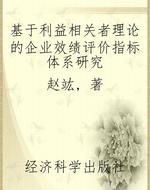 基于利益相关者理论
的企业效绩评价指标
体系研究
赵竑，著
经济科学出版社